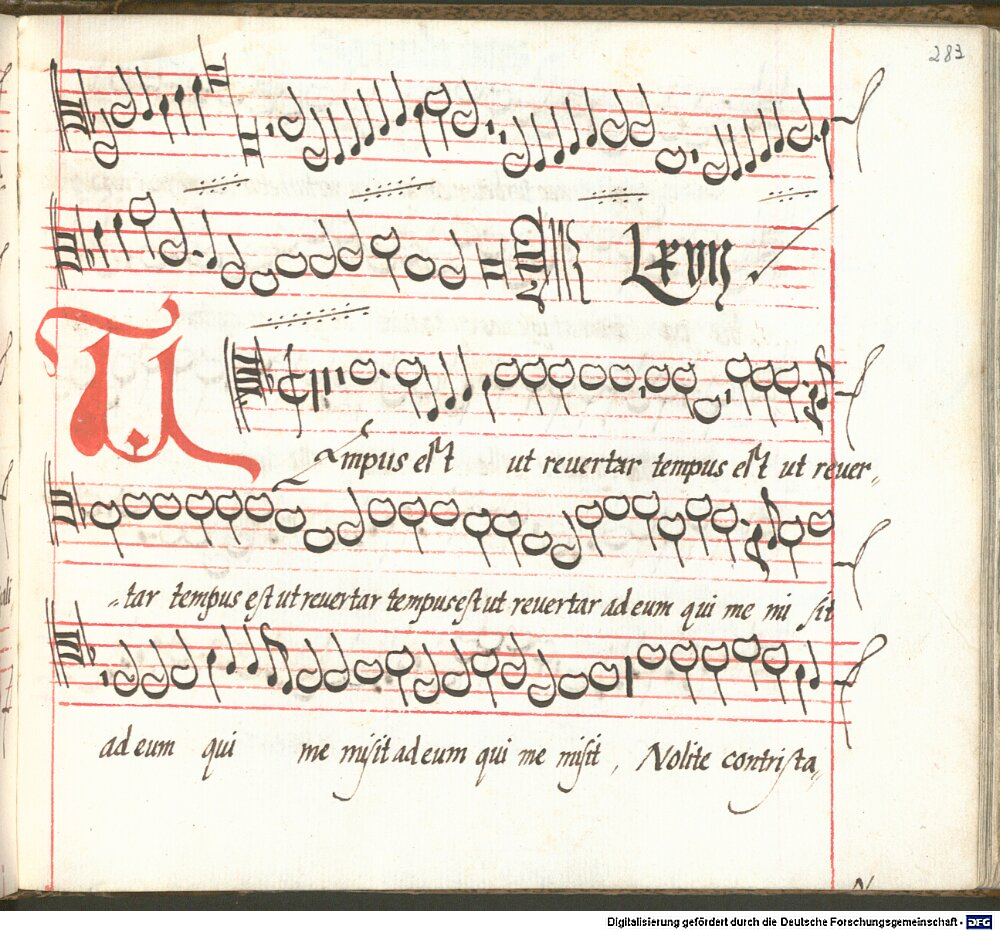 283
Lxvij
Tempus est ut reuertar tempus est ut reuer„
„tar tempus est ut reuertar tempus est ut reuertar ad eum qui me mi sit
ad eum qui me misit ad eum qui me misit , Nolite contrista„
Digitalisierung gefördert durch die Deutsche Forschungsgemeinschaft - DFG